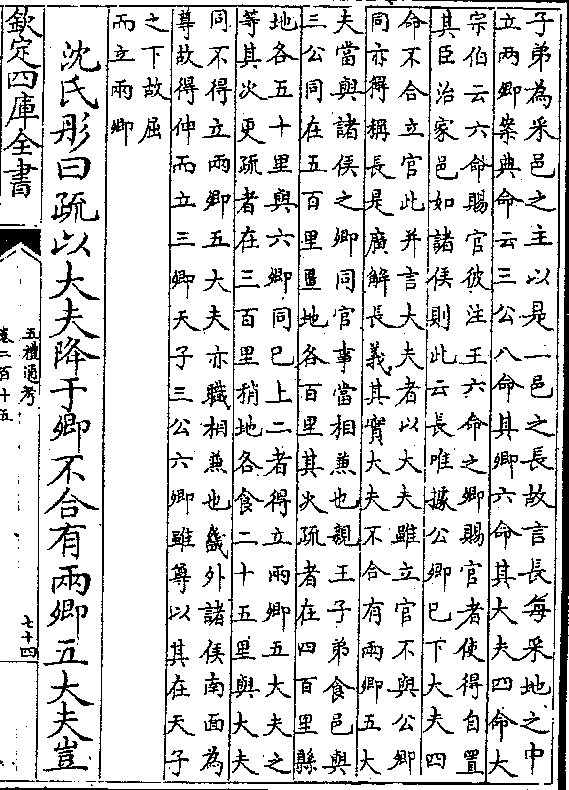 子弟為采邑之主以是一邑之長故言長每采地之中
立兩卿案典命云三公八命其卿六命其大夫四命大
宗伯云六命賜官彼注王六命之卿賜官者使得自置
其臣治家邑如諸侯則此云長唯據公卿已下大夫四
命不合立官此并言大夫者以大夫雖立官不與公卿
同亦得稱長是廣解長義其實大夫不合有兩卿五大
夫當與諸侯之卿同官事當相兼也親王子弟食邑與
三公同在五百里畺地各百里其次疏者在四百里縣
地各五十里與六卿同已上二者得立兩卿五大夫之
等其次更疏者在三百里稍地各食二十五里與大夫
同不得立兩卿五大夫亦職相兼也畿外諸侯南面為
尊故得伸而立三卿天子三公六卿雖尊以其在天子
之下故屈
而立兩卿
沈氏彤曰疏以大夫降于卿不合有兩卿五大夫豈
欽定四庫全書
五禮通考
卷二百十五
七十四